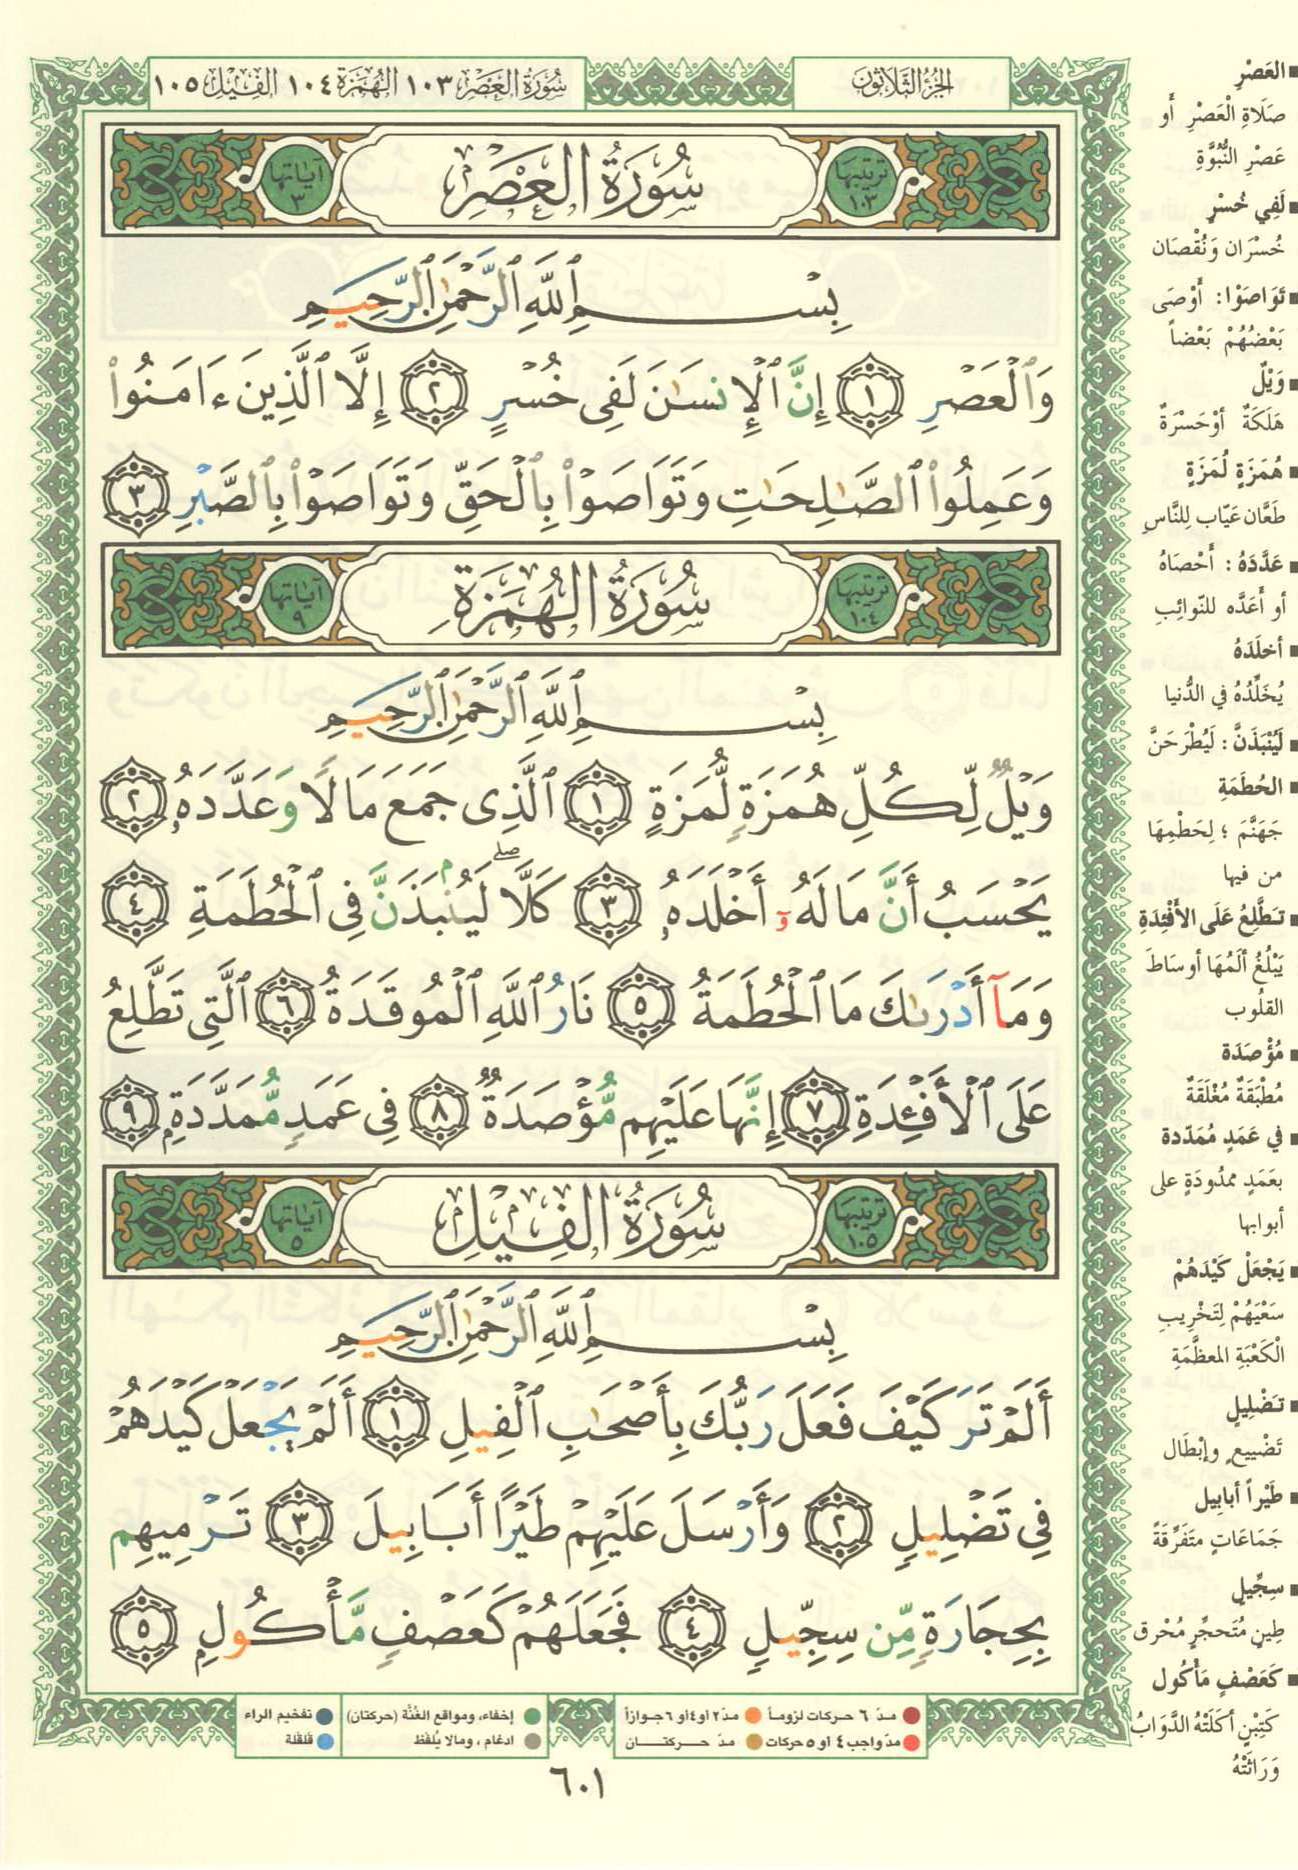 الجزء الثلاثون
سُورَةُ العَصْرِ ١٠٣ الهُمَزَة ١٠٤ الفِيْل ١٠٥
ترتيبها ١٠٣ سُورَةُ العَصْرِ آياتها ٣
بِسْمِ ٱللَّهِ ٱلرَّحْمَٰنِ ٱلرَّحِيمِ
وَٱلْعَصْرِ ١ إِنَّ ٱلْإِنسَٰنَ لَفِى خُسْرٍ ٢ إِلَّا ٱلَّذِينَ ءَامَنُوا۟
وَعَمِلُوا۟ ٱلصَّٰلِحَٰتِ وَتَوَاصَوْا۟ بِٱلْحَقِّ وَتَوَاصَوْا۟ بِٱلصَّبْرِ ٣
ترتيبها ١٠٤ سُورَةُ الهُمَزَةِ آياتها ٩
بِسْمِ ٱللَّهِ ٱلرَّحْمَٰنِ ٱلرَّحِيمِ
وَيْلٌ لِّكُلِّ هُمَزَةٍ لُّمَزَةٍ ١ ٱلَّذِى جَمَعَ مَالًا وَعَدَّدَهُۥ ٢
يَحْسَبُ أَنَّ مَالَهُۥٓ أَخْلَدَهُۥ ٣ كَلَّا ۖ لَيُنۢبَذَنَّ فِى ٱلْحُطَمَةِ ٤
وَمَآ أَدْرَىٰكَ مَا ٱلْحُطَمَةُ ٥ نَارُ ٱللَّهِ ٱلْمُوقَدَةُ ٦ ٱلَّتِى تَطَّلِعُ
عَلَى ٱلْأَفْـِٔدَةِ ٧ إِنَّهَا عَلَيْهِم مُّؤْصَدَةٌ ٨ فِى عَمَدٍ مُّمَدَّدَةٍۭ ٩
ترتيبها ١٠٥ سُورَةُ الفِيلِ آياتها ٥
بِسْمِ ٱللَّهِ ٱلرَّحْمَٰنِ ٱلرَّحِيمِ
أَلَمْ تَرَ كَيْفَ فَعَلَ رَبُّكَ بِأَصْحَٰبِ ٱلْفِيلِ ١ أَلَمْ يَجْعَلْ كَيْدَهُمْ
فِى تَضْلِيلٍ ٢ وَأَرْسَلَ عَلَيْهِمْ طَيْرًا أَبَابِيلَ ٣ تَرْمِيهِم
بِحِجَارَةٍ مِّن سِجِّيلٍ ٤ فَجَعَلَهُمْ كَعَصْفٍ مَّأْكُولٍۭ ٥
العَصْرِ
صَلَاةِ الْعَصْرِ أَو
عَصْرِ النُّبُوَّةِ
لَفِي خُسْرٍ
خُسْرَان وَنُقْصَان
تَوَاصَوْا: أَوْصَى
بَعْضُهُمْ بَعْضاً
وَيْلٌ
هَلَكَةٌ أوْ حَسْرَةٌ
هُمَزَةٍ لُمَزَةٍ
طَعَّان عَيّاب لِلنَّاسِ
عَدَّدَهُ: أَحْصَاهُ
أو أَعَدَّه للنّوائِبِ
أخلَدَهُ
يُخَلِّدُهُ في الدُّنيا
لَيُنْبَذَنَّ: لَيُطْرَحَنَّ
الحُطَمَةِ
جَهَنَّمَ؛ لِحَطْمِهَا
من فيها
تَطَّلِعُ عَلَى الأَفْئِدَةِ
يَبْلُغُ أَلَمُهَا أوسَاطَ
القلُوب
مُؤْصَدَة
مُطْبَقَةٌ مُغْلَقَةٌ
في عَمَدٍ مُمَدّدة
بعَمَدٍ ممْدُودَةٍ على
أبوابها
يَجْعَلْ كَيْدَهُمْ
سَعْيَهُمْ لِتَخْرِيبِ
الْكَعْبَةِ المعظَّمَةِ
تَضْلِيلٍ
تَضْييعٍ وإبْطَال
طَيْراً أبابِيل
جَمَاعَاتٍ متَفَرِّقَةً
سِجِّيلٍ
طِينٍ مُتَحجِّرٍ مُحْرق
كَعَصْفٍ مَأْكُول
كَتِبْنٍ أكَلَتْهُ الدَّوَابُّ
وَرَاثَتْهُ
مدّ ٦ حركات لزوماً مدّ ٢ أو ٤ أو ٦ جوازاً إخفاء، ومواقع الغُنَّة (حركتان) تفخيم الراء
مدّ واجب ٤ أو ٥ حركات مدّ حركتان ادغام، ومالا يُلفَظ قلقلة
٦٠١